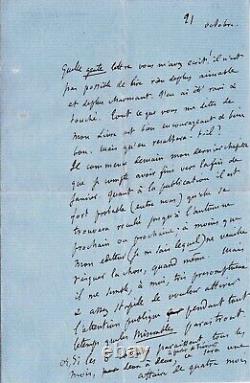 21
octobre.
Quelle gente lettre vous m'avez écrit! il n'est
pas possible de lire rien de plus aimable
et de plus charmant. J'en ai été ravi &
touché. Tout ce que vous me dites de
mon livre est bon encourageant & bon
bon. mais qu'en résultera-t-il?
Je commence demain mon dernier chapitre
que je compte avoir fini vers la fin de
janvier. Quant à la publication il est
fort probable (entre nous) qu'elle se
trouvera reculé jusqu'à l'automne
prochain ou prochaine; à moins que
mon éditeur (je ne sais lequel) ne veuille
risquer la chose, quand même. Mais
il me semble, à moi, très présomptueux
& assez stupide de vouloir attirer
l'attention publique pendant tout
le temps que les Misérables paraîtront.
Si les 8 vol. paraissent tous les
mois, deux à deux, ce sera une
affaire de quatre mois